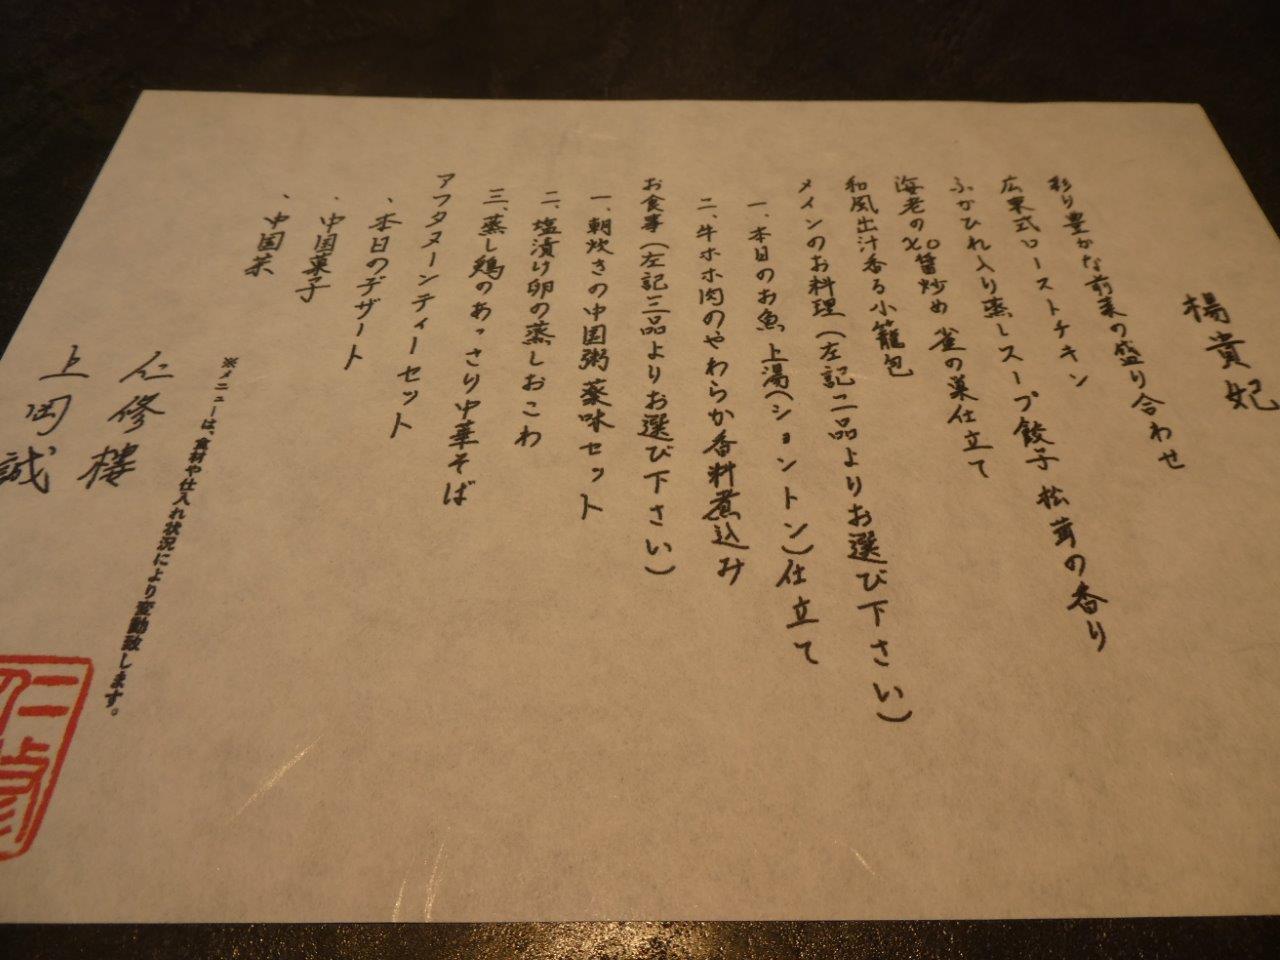 楊貴妃
彩り豊かな前菜の盛り合わせ
広東式ローストチキン
ふかひれ入り蒸しスープ餃子 松茸の香り
海老のXO醤炒め 雀の巣仕立て
和風出汁香る小籠包
メインのお料理(左記二品よりお選び下さい)
一、本日のお魚 上湯(ションタン)仕立て
二、牛ホホ肉のやわらか香料煮込み
お食事(左記三品よりお選び下さい)
一、朝炊きの中国粥 薬味セット
二、塩漬け卵の蒸しおこわ
三、蒸し鶏のあっさり中華そば
アフタヌーンティーセット
、本日のデザート
、中国菓子
、中国茶
※メニューは、食材や仕入れ状況により変動致します。
仁修樓
上岡誠
仁修